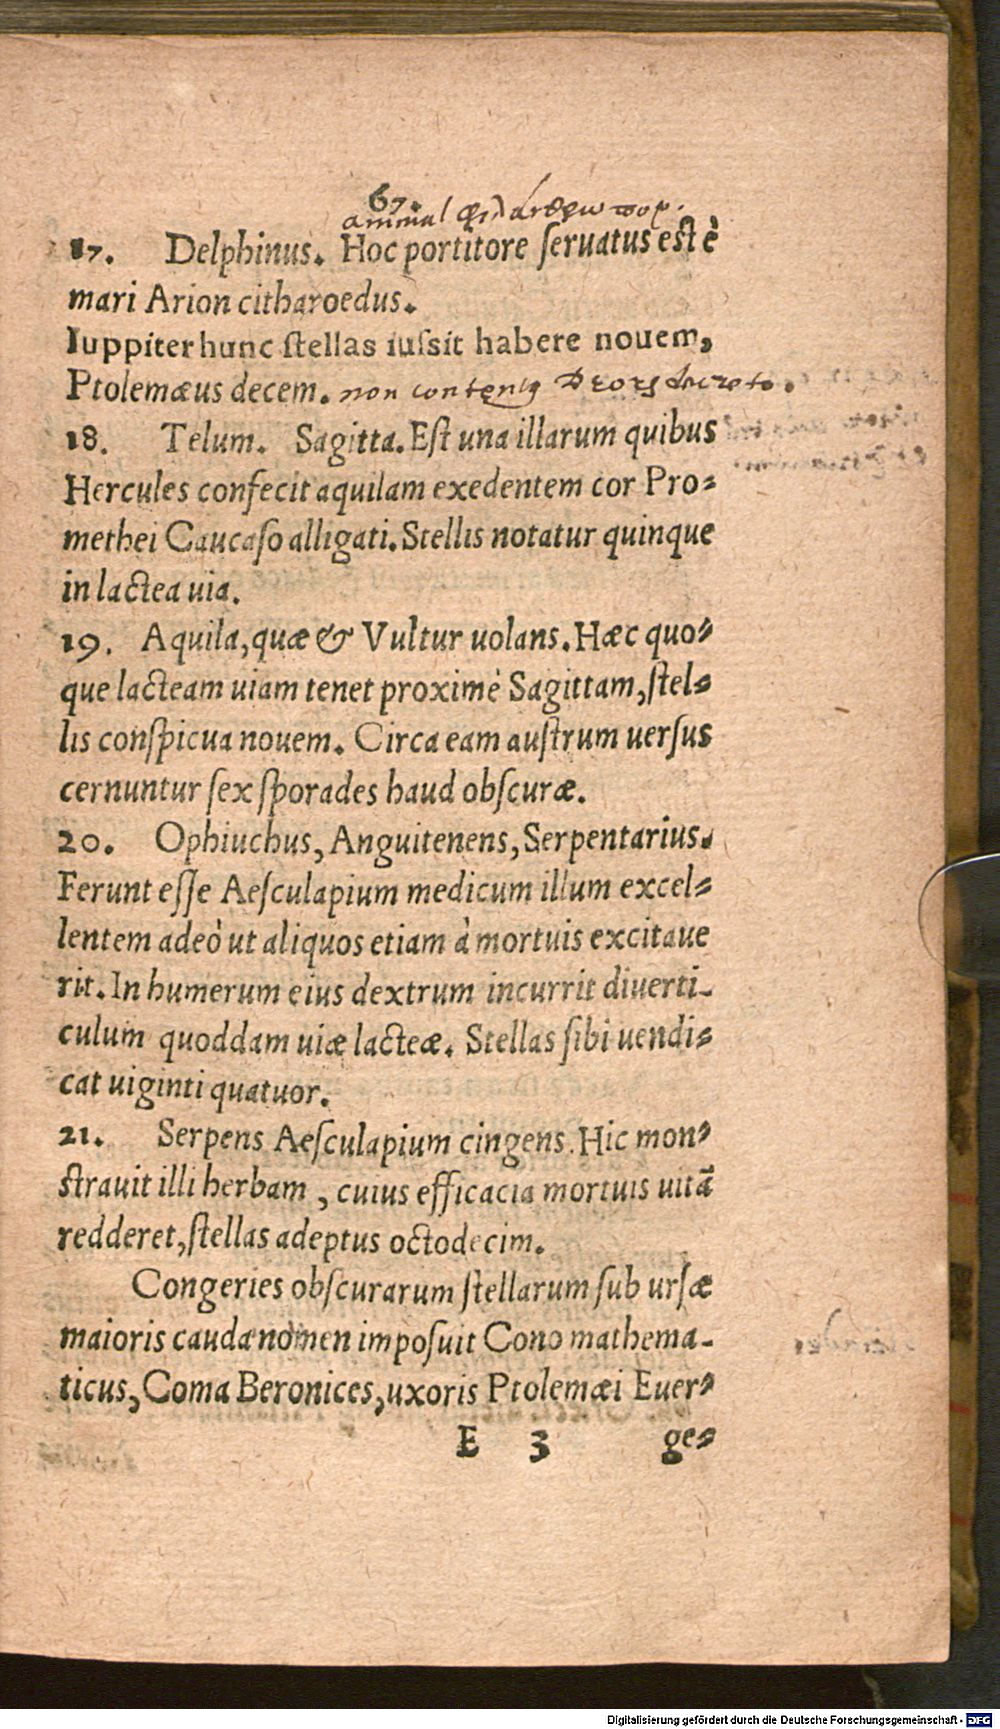 67.
animal φιλάνθρωπον.
17. Delphinus. Hoc portitore ſeruatus est è
mari Arion citharoedus.
Iuppiter hunc stellas iuſsit habere nouem,
Ptolemæus decem. non contentus Deorum decreto.
18. Telum. Sagitta. Eſt una illarum quibus
Hercules confecit aquilam exedentem cor Pro-
methei Caucaſo alligati. Stellis notatur quinque
in lactea uia.
19. Aquila, quæ & Vultur uolans. Hæc quo-
que lacteam uiam tenet proximè Sagittam, ſtel-
lis conſpicua nouem. Circa eam auſtrum uerſus
cernuntur ſex ſporades haud obſcuræ.
20. Ophiuchus, Anguitenens, Serpentarius.
Ferunt eſſe Aeſculapium medicum illum excel-
lentem adeò ut aliquos etiam à mortuis excitaue
rit. In humerum eius dextrum incurrit diuerti-
culum quoddam uiæ lacteæ. Stellas ſibi uendi-
cat uiginti quatuor.
21. Serpens Aeſculapium cingens. Hic mon-
strauit illi herbam, cuius efficacia mortuis uitā
redderet, ſtellas adeptus octodecim.
Congeries obſcurarum ſtellarum ſub urſæ
maioris cauda nomen impoſuit Cono mathema-
ticus, Coma Beronices, uxoris Ptolemæi Euer-
E 3 ge-
Digitalisierung gefördert durch die Deutsche Forschungsgemeinschaft - DFG